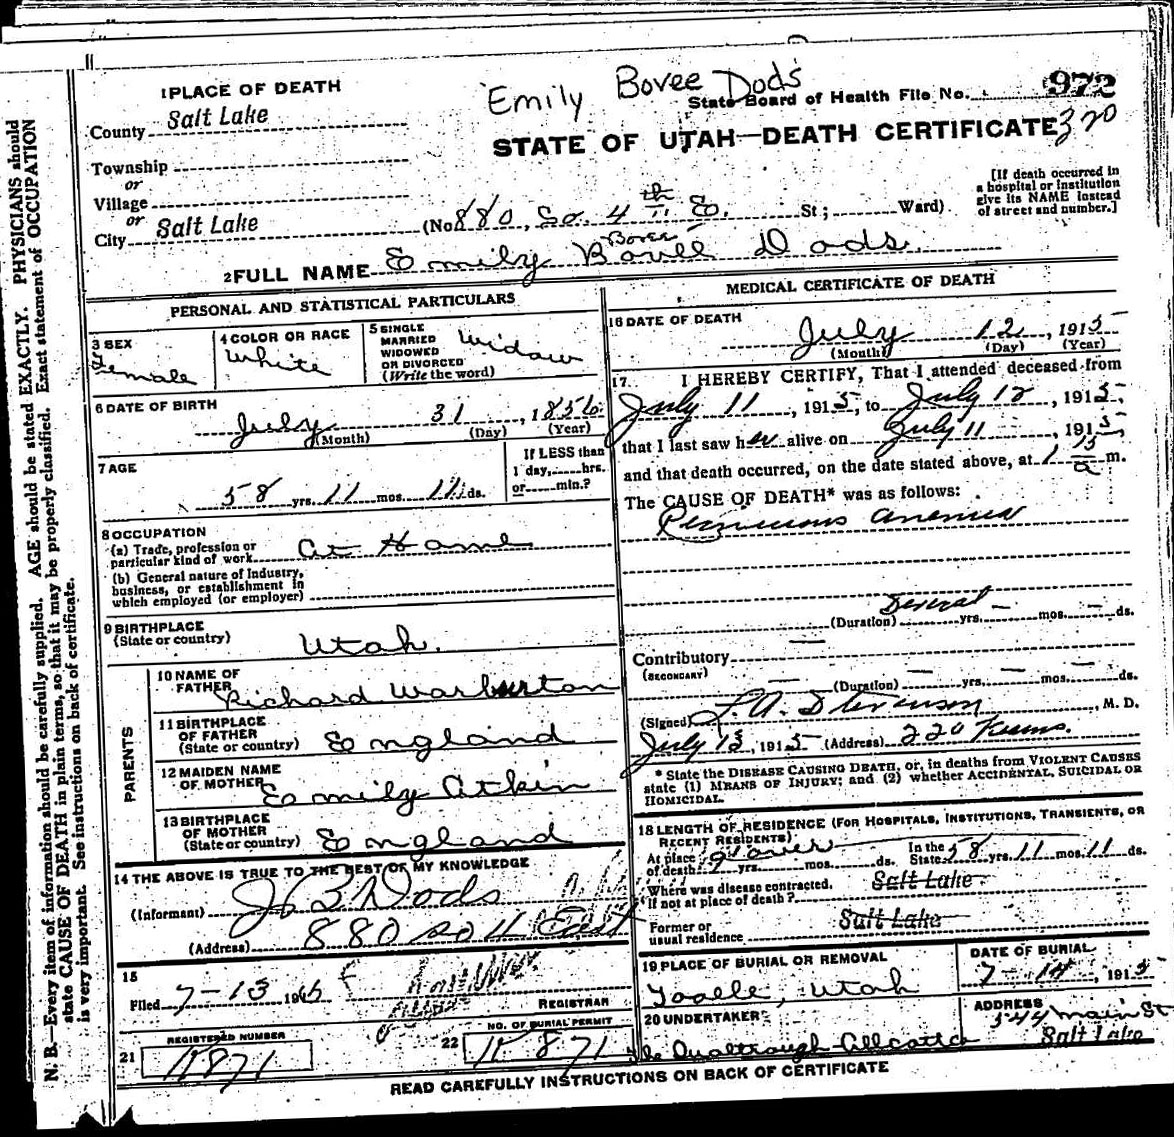 Emily Bovee Dods
972
State Board of Health File No.
STATE OF UTAH—DEATH CERTIFICATE 320
1 PLACE OF DEATH
County Salt Lake
Township
or
Village
or
City Salt Lake (No. 880, So. 4th E. St; Ward)
[If death occurred in
a hospital or institution
give its NAME instead
of street and number.]
Bovee
2 FULL NAME Emily Dods
PERSONAL AND STATISTICAL PARTICULARS
3 SEX
Female
4 COLOR OR RACE
White
5 SINGLE
MARRIED
WIDOWED
OR DIVORCED
(Write the word)
Widow
6 DATE OF BIRTH
July 31, 1856
(Month) (Day) (Year)
7 AGE
58 yrs. 11 mos. 11 ds.
If LESS than
1 day, hrs.
or min.?
8 OCCUPATION
(a) Trade, profession or
particular kind of work At Home
(b) General nature of Industry,
business, or establishment in
which employed (or employer)
9 BIRTHPLACE
(State or country) Utah.
PARENTS
10 NAME OF
FATHER Richard Warburton
11 BIRTHPLACE
OF FATHER
(State or country) England
12 MAIDEN NAME
OF MOTHER Emily Atkin
13 BIRTHPLACE
OF MOTHER
(State or country) England
14 THE ABOVE IS TRUE TO THE BEST OF MY KNOWLEDGE
(Informant) Dods
(Address) 880 So 4 East
15
Filed 7-13 1915
REGISTRAR
REGISTERED NUMBER
21
22
NO. OF BURIAL PERMIT
MEDICAL CERTIFICATE OF DEATH
16 DATE OF DEATH
July 12, 1915
(Month) (Day) (Year)
17. I HEREBY CERTIFY, That I attended deceased from
July 11, 1915, to July 12, 1915,
that I last saw her alive on July 11, 1915,
and that death occurred, on the date stated above, at 1 15 a m.
The CAUSE OF DEATH* was as follows:
Pernicious anemia
(Duration) Several yrs. — mos. — ds.
Contributory —
(SECONDARY)
— (Duration) — yrs. — mos. — ds.
(Signed) Stevenson, M. D.
July 13, 1915 (Address) 220 Kearns.
* State the DISEASE CAUSING DEATH, or, in deaths from VIOLENT CAUSES
state (1) MEANS OF INJURY; and (2) whether ACCIDENTAL, SUICIDAL OR
HOMICIDAL.
18 LENGTH OF RESIDENCE (FOR HOSPITALS, INSTITUTIONS, TRANSIENTS, OR
RECENT RESIDENTS)
At place
of death yrs. mos. ds. In the
State 58 yrs. 11 mos. 11 ds.
Where was disease contracted.
if not at place of death? Salt Lake
Former or
usual residence Salt Lake
19 PLACE OF BURIAL OR REMOVAL
Tooele, Utah
DATE OF BURIAL
7-14, 1915
20 UNDERTAKER
ADDRESS
344 Main St
Salt Lake
READ CAREFULLY INSTRUCTIONS ON BACK OF CERTIFICATE
N. B.—Every item of information should be carefully supplied. AGE should be stated EXACTLY. PHYSICIANS should
state CAUSE OF DEATH in plain terms, so that it may be properly classified. Exact statement of OCCUPATION
is very important. See instructions on back of certificate.